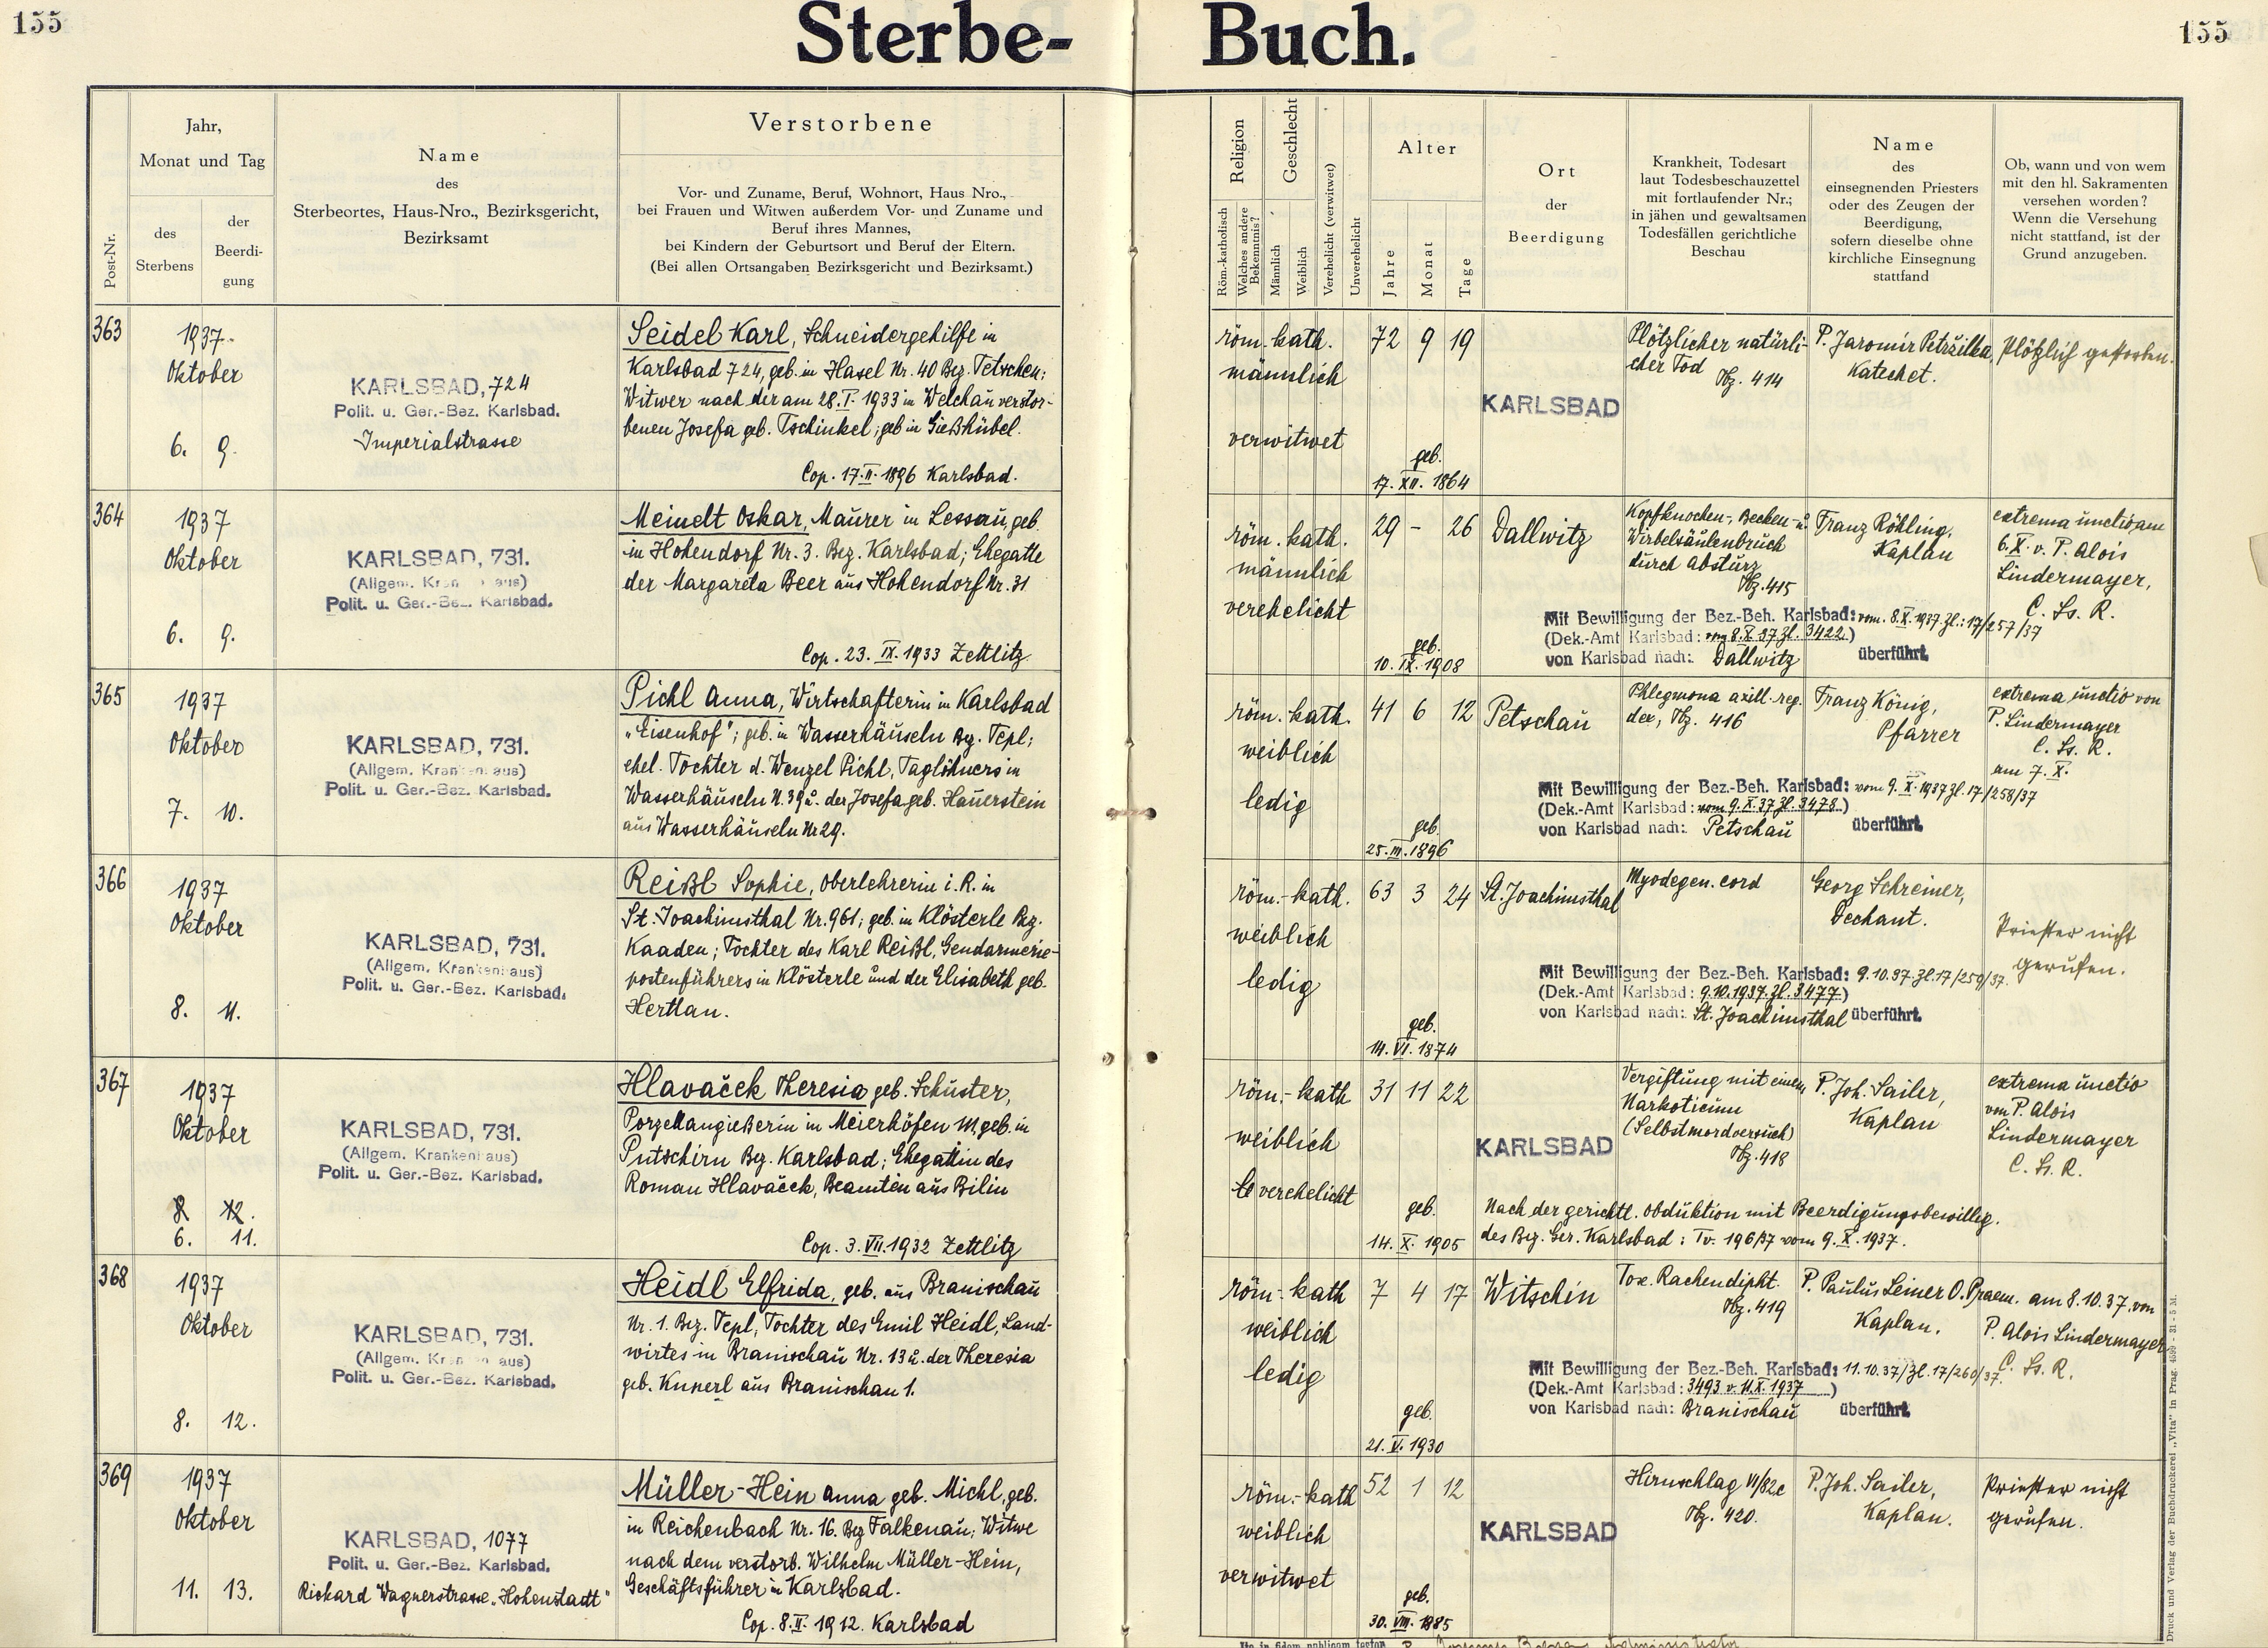 155
Sterbe-
Buch.
155
Post-Nr.
Jahr,
Monat und Tag
des
Sterbens
der
Beerdi-
gung
Name
des
Sterbeortes, Haus-Nro., Bezirksgericht,
Bezirksamt
Verstorbene
Vor- und Zuname, Beruf, Wohnort, Haus Nro.,
bei Frauen und Witwen außerdem Vor- und Zuname und
Beruf ihres Mannes,
bei Kindern der Geburtsort und Beruf der Eltern.
(Bei allen Ortsangaben Bezirksgericht und Bezirksamt.)
Religion
Röm.-katholisch
Welches andere
Bekenntnis?
Geschlecht
Männlich
Weiblich
Verehelicht (verwitwet)
Unverehelicht
Alter
Jahre
Monat
Tage
Ort
der
Beerdigung
Krankheit, Todesart
laut Todesbeschauzettel
mit fortlaufender Nr.;
in jähen und gewaltsamen
Todesfällen gerichtliche
Beschau
Name
des
einsegnenden Priesters
oder des Zeugen der
Beerdigung,
sofern dieselbe ohne
kirchliche Einsegnung
stattfand
Ob, wann und von wem
mit den hl. Sakramenten
versehen worden?
Wenn die Versehung
nicht stattfand, ist der
Grund anzugeben.
363
1937
Oktober
6. 9.
KARLSBAD, 724
Polit. u. Ger.-Bez. Karlsbad.
Imperialstrasse
Seidel Karl, Schneidergehilfe in
Karlsbad 724, geb. in Hasel Nr. 40 Bez. Tetschen;
Witwer nach der am 28.I.1933 in Welchau verstor-
benen Josefa geb. Tschinkel; geb in Gießhübel.
Cop. 17.II.1896 Karlsbad.
röm. kath.
männlich
verwitwet
72 9 19
geb.
17. XII. 1864
KARLSBAD
Plötzlicher natürli-
cher Tod
Tbz. 414
P. Jaromir Petržilka,
Katechet.
Plötzlich gestorben.
364
1937
Oktober
6. 9.
KARLSBAD, 731.
(Allgem. Kran aus)
Polit. u. Ger.-Bez. Karlsbad.
Meinelt Oskar, Maurer in Lessau, geb.
in Hohendorf Nr. 3. Bez. Karlsbad; Ehegatte
der Margareta Beer aus Hohendorf Nr. 31
Cop. 23. IX. 1933 Zettlitz
röm. kath.
männlich
verehelicht
29 - 26
geb.
10. IX. 1908
Dallwitz
Kopfknochen-, Becken- u.
Wirbelsäulenbruch
durch Absturz
Tbz. 415
Franz Rößling,
Kaplan
extrema unctio am
6.X. v. P. Alois
Lindermayer,
C. Ss. R.
Mit Bewilligung der Bez.-Beh. Karlsbad: vom. 8.X.1937 Zl.: 17/257/37
(Dek.-Amt Karlsbad: vom 8.X.37 Zl. 3422.)
von Karlsbad nach: Dallwitz überführt.
365
1937
Oktober
7. 10.
KARLSBAD, 731.
(Allgem. Kranken aus)
Polit. u. Ger.-Bez. Karlsbad.
Pichl Anna, Wirtschafterin in Karlsbad
"Eisenhof"; geb. in Wasserhäuseln Bez. Tepl;
ehel. Tochter d. Wenzel Pichl, Taglöhners in
Wasserhäuseln N. 39 u. der Josefa geb. Hauerstein
aus Wasserhäuseln Nr 29.
röm. kath.
weiblich
ledig
41 6 12
geb.
25. III. 1896
Petschau
Phlegmona axill. reg.
dex, Tbz. 416
Franz König,
Pfarrer
extrema unctio von
P. Lindermayer
C. Ss. R.
am 7. X.
Mit Bewilligung der Bez.-Beh. Karlsbad: vom 9. X. 1937 Zl. 17/258/37
(Dek.-Amt Karlsbad: vom 9.X.37 Zl. 3478.)
von Karlsbad nach: Petschau überführt.
366
1937
Oktober
8. 11.
KARLSBAD, 731.
(Allgem. Krankenhaus)
Polit. u. Ger.-Bez. Karlsbad.
Reißl Sophie, Oberlehrerin i. R. in
St. Joachimsthal Nr. 961; geb. in Klösterle Bez.
Kaaden; Tochter des Karl Reißl, Gendarmerie-
postenführers in Klösterle und der Elisabeth geb.
Hertlan.
röm.- kath.
weiblich
ledig
63 3 24
geb.
14. VI. 1874
St. Joachimsthal
Myodegen. cord
Georg Schreiner,
Dechant.
Priester nicht
gerufen.
Mit Bewilligung der Bez.-Beh. Karlsbad: 9.10.37. Zl. 17/259/37.
(Dek.-Amt Karlsbad: 9.10.1937. Zl. 3477)
von Karlsbad nach: St. Joachimsthal überführt.
367
1937
Oktober
8 12.
6. 11.
KARLSBAD, 731.
(Allgem. Krankenhaus)
Polit. u. Ger.-Bez. Karlsbad.
Hlavaček Theresia geb. Schuster,
Porzellangießerin in Meierhöfen 111, geb. in
Putschirn Bez. Karlsbad; Ehegattin des
Roman Hlavaček, Beamten aus Bilin
Cop. 3. VII. 1932 Zettlitz
röm.- kath
weiblich
verehelicht
31 11 22
geb.
14. X. 1905
KARLSBAD
Vergiftung mit einem
Narkoticum
(Selbstmordversuch)
Tbz. 418
P. Joh. Sailer,
Kaplan
extrema unctio
von P. Alois
Lindermayer
C. Ss. R.
Nach der gerichtl. Obduktion mit Beerdigungsbewillig.
des Bez. Ger. Karlsbad: Tv. 196/37 vom 9. X. 1937.
368
1937
Oktober
8. 12.
KARLSBAD, 731.
(Allgem. Kr en aus)
Polit. u. Ger.-Bez. Karlsbad.
Heidl Elfrida, geb. aus Branischau
Nr. 1. Bez. Tepl; Tochter des Emil Heidl, Land-
wirtes in Branischau Nr. 13 u. der Theresia
geb. Kunerl aus Branischau 1.
röm.- kath
weiblich
ledig
7 4 17
geb.
21. V. 1930
Witschin
Tox. Rachendipht.
Tbz. 419
P. Paulus Leiner O. Praem.
Kaplan.
am 8.10.37. von
P. Alois Lindermayer
C. Ss. R.
Mit Bewilligung der Bez.-Beh. Karlsbad: 11.10.37/Zl. 17/260/37.
(Dek.-Amt Karlsbad: 3493 v. 11.X.1937 )
von Karlsbad nach: Branischau überführt.
369
1937
Oktober
11. 13.
KARLSBAD, 1077
Polit. u. Ger.-Bez. Karlsbad.
Richard Wagnerstrasse „Hohenstadt"
Müller-Hein Anna geb. Michl, geb.
in Reichenbach Nr. 16. Bez Falkenau; Witwe
nach dem verstorb. Wilhelm Müller-Hein,
Geschäftsführer in Karlsbad.
Cop. 8. II. 1912. Karlsbad
röm.- kath
weiblich
verwitwet
52 1 12
geb.
30. VIII. 1885
KARLSBAD
Hirnschlag VI/82c
Tbz. 420.
P. Joh. Sailer,
Kaplan.
Priester nicht
gerufen.
Druck und Verlag der Buchdruckerei „Vita" in Prag. 4599 - 31 - 5 M.